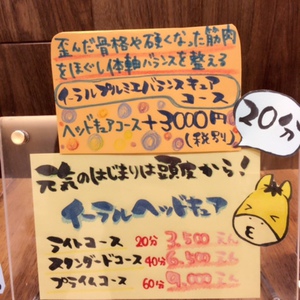 歪んだ骨格や硬くなった筋肉
をほぐし体軸バランスを整える
イーラルプルミエバランスキュア
コース
20分
ヘッドキュアコース+3000円
(税別)
元気のはじまりは頭皮から!
イーラルヘッドキュア
ライトコース 20分 3,500えん
スタンダードコース 40分 6,500えん
プライムコース 60分 9,000えん